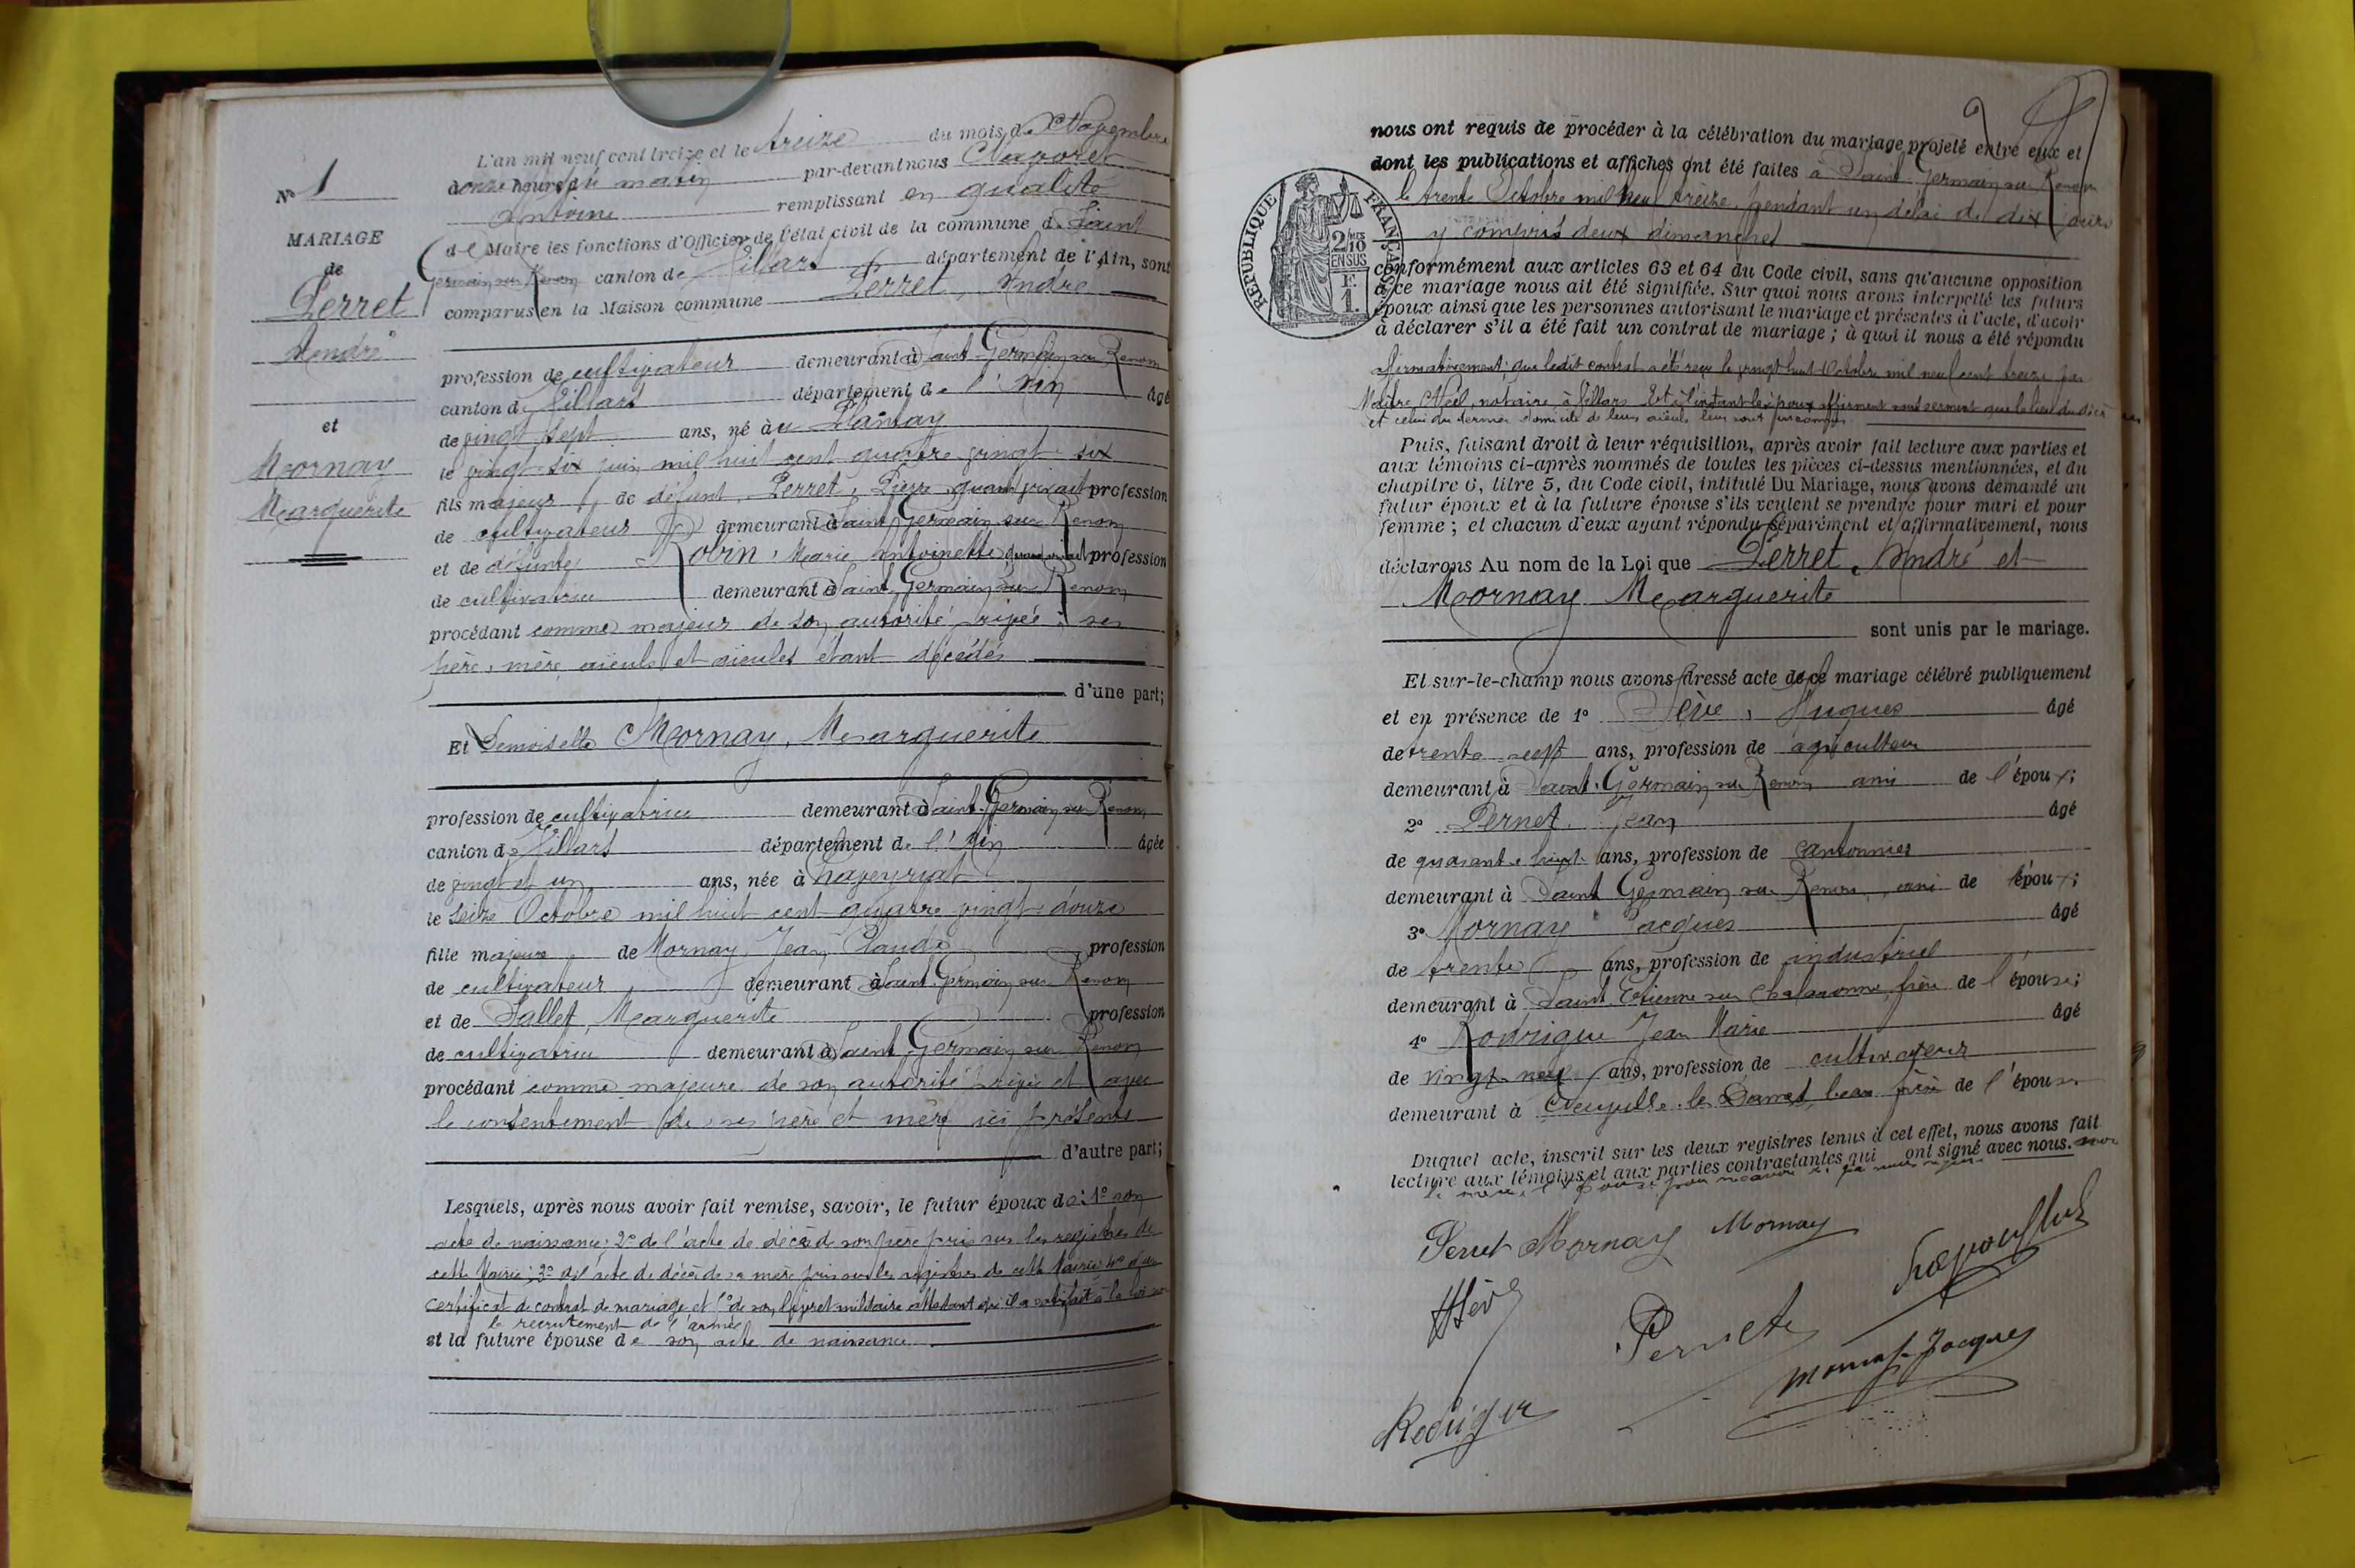 L'an mil neuf cent treize et le treize du mois de Novembre
onze heures du matin par-devant nous
Antoine remplissant en qualité
de Maire les fonctions d'Officier de l'état civil de la commune de Saint
Germain sur Renon canton de Villars département de l'Ain, sont
comparus en la Maison commune Perret, André
profession de cultivateur demeurant à Saint Germain sur Renon
canton de Villars département de l'Ain âgé
de vingt sept ans, né au Plantay
le vingt-six juin mil huit cent quatre vingt-six
fils majeur de défunt Perret, Pierre quand vivait profession
de cultivateur demeurant à Saint Germain sur Renon
et de défunte Robin, Marie Antoinette quand vivait profession
de cultivatrice demeurant à Saint Germain sur Renon
procédant comme majeur de son autorité privée; ses
père, mère, aïeuls et aïeules étant décédés
d'une part;
Et Demoiselle Mornay, Marguerite
profession de cultivatrice demeurant à Saint-Germain sur Renon
canton de Villars département de l'Ain âgée
de vingt et un ans, née à Chaveyriat
le seize Octobre mil huit cent quatre vingt-douze
fille majeure de Mornay Jean Claude profession
de cultivateur demeurant à Saint-Germain sur Renon
et de Sallet, Marguerite profession
de cultivatrice demeurant à Saint Germain sur Renon
procédant comme majeure de son autorité privée et avec
le consentement de ses père et mère ici présents
d'autre part;
Lesquels, après nous avoir fait remise, savoir, le futur époux de: 1° son
acte de naissance; 2° de l'acte de décès de son père pris sur les registres de
cette Mairie; 3° de l'acte de décès de sa mère pris sur les registres de cette Mairie; 4° d'un
certificat de contrat de mariage et 5° de son livret militaire attestant qu'il a satisfait à la loi sur
le recrutement de l'armée
et la future épouse de son acte de naissance
N° 1
MARIAGE
de
Perret
André
et
Mornay
Marguerite
nous ont requis de procéder à la célébration du mariage projeté entre eux et
dont les publications et affiches ont été faites à Saint-Germain sur Renon
le trente Octobre mil neuf treize, pendant un délai de dix jours
y compris deux dimanches
RÉPUBLIQUE FRANÇAISE
2/10 EN SUS
1 F.
conformément aux articles 63 et 64 du Code civil, sans qu'aucune opposition
à ce mariage nous ait été signifiée. Sur quoi nous avons interpellé les futurs
époux ainsi que les personnes autorisant le mariage et présentes à l'acte, d'avoir
à déclarer s'il a été fait un contrat de mariage; à quoi il nous a été répondu
affirmativement; que ledit contrat a été reçu le vingt huit Octobre mil neuf cent treize par
Maître Noël, notaire à Villars. Et à l'instant les époux affirment sous serment que le lieu du décès
et celui du dernier domicile de leurs aïeuls leur sont inconnus
Puis, faisant droit à leur réquisition, après avoir fait lecture aux parties et
aux témoins ci-après nommés de toutes les pièces ci-dessus mentionnées, et du
chapitre 6, titre 5, du Code civil, intitulé Du Mariage, nous avons demandé au
futur époux et à la future épouse s'ils veulent se prendre pour mari et pour
femme; et chacun d'eux ayant répondu séparément et affirmativement, nous
déclarons Au nom de la Loi que Perret, André et
Mornay Marguerite
sont unis par le mariage.
Et sur-le-champ nous avons dressé acte de ce mariage célébré publiquement
et en présence de 1° Sève, Hugues âgé
de trente sept ans, profession de agriculteur
demeurant à Saint-Germain sur Renon ami de l'époux;
2° Pernet Jean âgé
de quarante huit ans, profession de cantonnier
demeurant à Saint Germain sur Renon, ami de l'époux;
3° Mornay Jacques âgé
de trente ans, profession de industriel
demeurant à Saint Etienne sur Chalaronne, frère de l'épouse;
4° Rodrigue Jean Marie âgé
de vingt-neuf ans, profession de cultivateur
demeurant à Neuville-les-Dames, beau frère de l'épouse
Duquel acte, inscrit sur les deux registres tenus à cet effet, nous avons fait
lecture aux témoins et aux parties contractantes qui ont signé avec nous.
Perret Mornay Mornay
HSève
Pernet
Mornay Jacques
Rodrigue